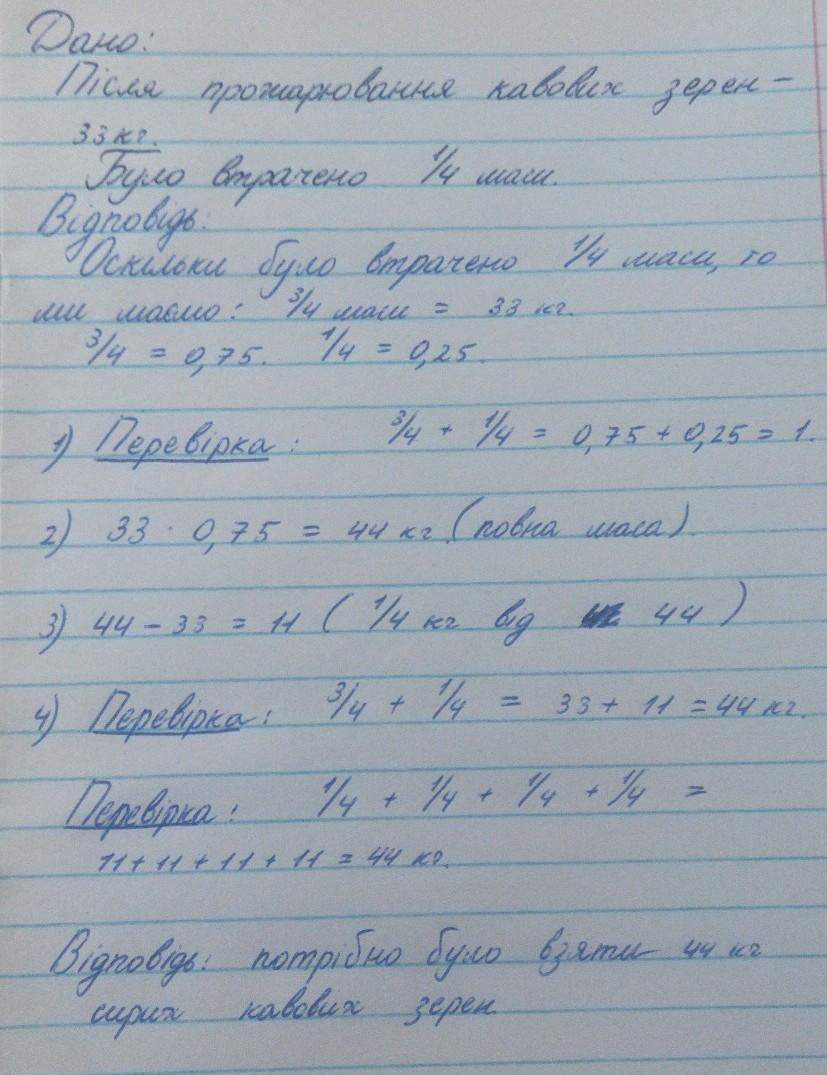 Дано:
Після прожарювання кавових зерен –
33 кг.
Було втрачено 1/4 маси.
Відповідь:
Оскільки було втрачено 1/4 маси, то
ми маємо: 3/4 маси = 33 кг.
3/4 = 0,75. 1/4 = 0,25.
1) Перевірка: 3/4 + 1/4 = 0,75 + 0,25 = 1.
2) 33 · 0,75 = 44 кг (повна маса).
3) 44 – 33 = 11 ( 1/4 кг від 44 )
4) Перевірка: 3/4 + 1/4 = 33 + 11 = 44 кг.
Перевірка: 1/4 + 1/4 + 1/4 + 1/4 =
11 + 11 + 11 + 11 = 44 кг.
Відповідь: потрібно було взяти 44 кг
сирих кавових зерен.